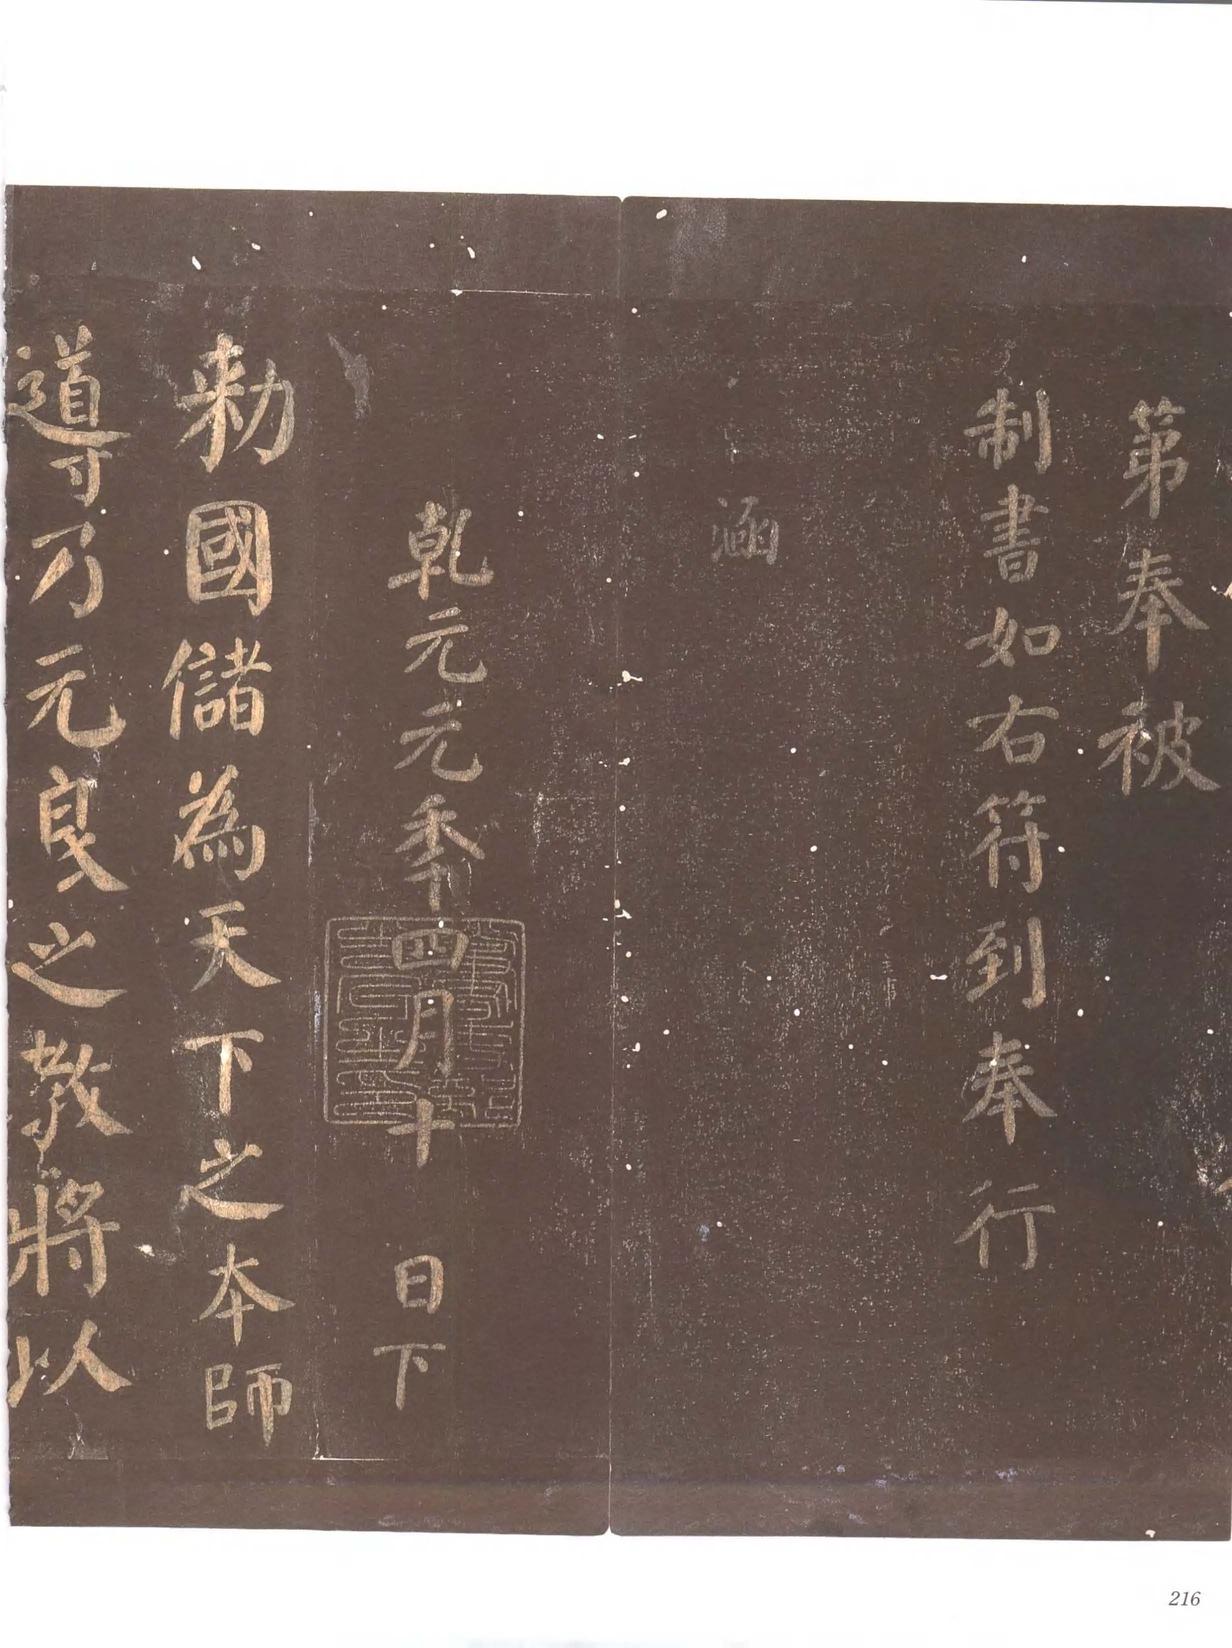 第奉被
制書如右符到奉行
涵
乾元元年四月十 日下
勑國儲為天下之本師
導乃元良之教將以
216